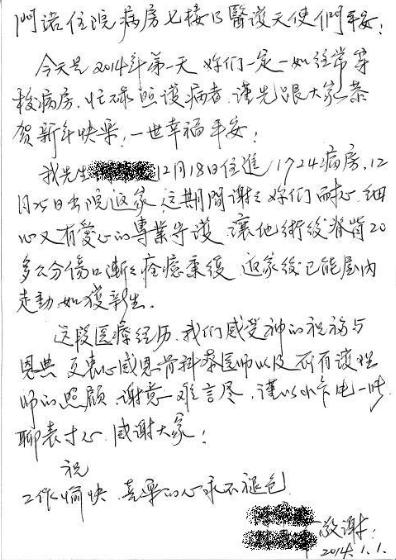 阿諾住院病房七樓B醫護天使們平安：
今天是2014年第一天 妳們一定一如往常等
梭病房，忙碌照護病者，謹先跟大家恭
賀新年快樂，一世幸福平安！
我先生 12月18日住進1724病房，12
月25日出院返家，這期間謝謝妳們耐心、細
心又有愛心的專業守護，讓他術後脊背20
多公分傷口漸漸痊癒康復，返家後已能屋內
走動，如獲新生。
這段医療經历，我們感受神的祝福与
恩典，更衷心感恩骨科 医师以及所有護理
师的照顧，謝意难言尽，謹以小卡 一
聊表寸心，感谢大家！
祝
工作愉快，喜樂的心永不褪色
敬謝！
2014.1.1.